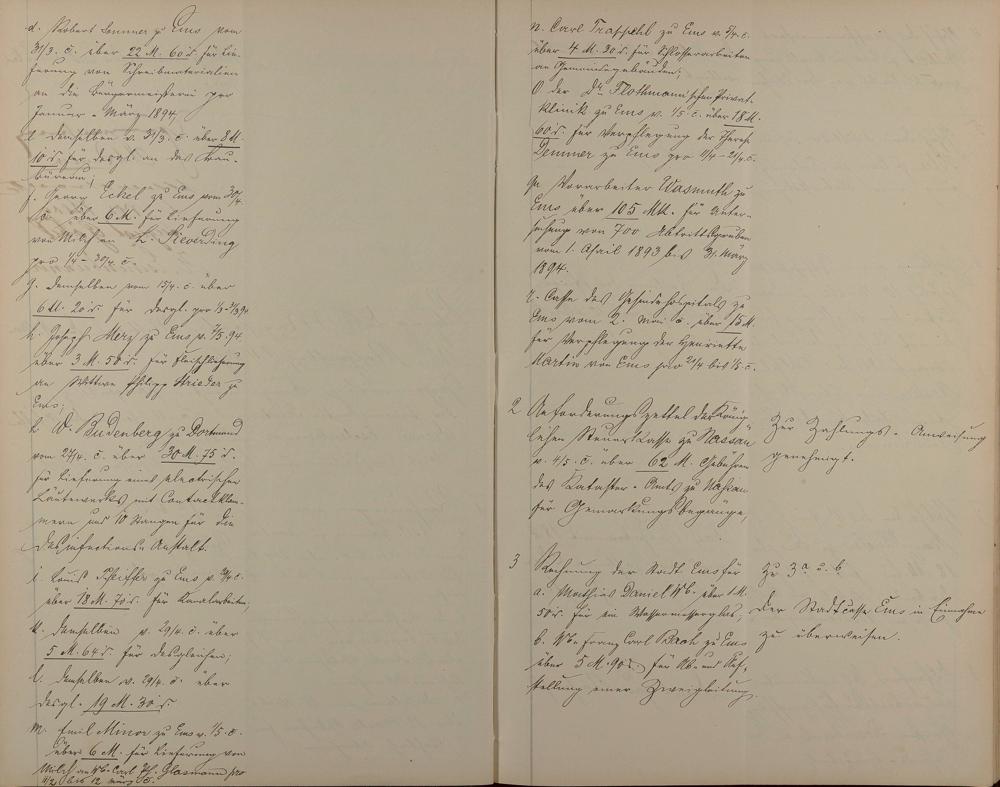 d. Robert Lemmer zu Ems vom
31/3. c. über 22 M. 60 d. für Lie-
ferung von Schreibmaterialien
an die Bürgermeisterei pro
Januar - März 1894,
e. demselben v. 31/3. c. über 8 M.
10 d. für desgl. an das Bau-
büreau;
f. Georg Eckel zu Ems vom 30/4.
c. über 6 M. für Lieferung
von Milch an L. Sieverding
pro 1/4 - 30/4. c.
g. demselben vom 15/4. c. über
6 M. 20 d. für desgl. pro
h. Joseph Merz zu Ems v. 7/5. 94
über 3 M. 50 d. für Fleischlieferung
an Wittwe Philipp Strieder zu
Ems;
h. W. Budenberg zu Dortmund
vom 27/4. c. über 30 M. 75 d.
für Lieferung eines electrischen
Läutewerkes mit Contactklem-
mern und 10 Stangen für die
Desinfections-Anstalt.
i. Louis Pfeiffer zu Ems v.
über 18 M. 70 d. für Kanalarbeiten;
k. demselben v. 29/4. c. über
5 M. 64 d. für desgleichen;
l. demselben v. 29/4. c. über
desgl. 19 M. 30 d.
m. Emil Minor zu Ems v. 1/5. c.
über 6 M. für Lieferung von
Milch an Wb. Carl Th. Glasmann pro
bis 12 März c.
n. Carl Trapphel zu Ems v. 5/4. c.
über 4 M. 30 d. für Schlosserarbeiten
an Gemeindegebäuden;
O der Dr. Flothmann'schen Privat-
klinik zu Ems v. 1/5. c. über 18 M.
60 d. für Verpflegung der Therese
Demmer zu Ems pro 11/4 - 21/4. c.
Vorarbeiter Wasmuth zu
Ems über 105 Mk. für Unter-
suchung von 700 Abtrittsgruben
vom 1. April 1893 bis 31. März
1894.
q. Casse des Gesindehospitals zu
Ems vom 2. Mai c. über 15 M.
für Verpflegung der Henriette
Martin von Ems pro 21/4 bis 1/5 c.
2 Anforderungszettel der König-
lichen Steuerkasse zu Nassau
v. 4/5. c. über 62 M. Gebühren
des Kataster-Amts zu Nassau
für Gemarkungsbegänge,
Zur Zahlungs-Anweisung
genehmigt.
3 Rechnung der Stadt Ems für
a. Mathias Daniel Wb. über 1 M.
50 d. für ein Wassermesserglas,
b. Wb. Franz Carl Bach zu Ems
über 5 M. 90 d. für Ab- und
stellung einer Zweigleitung.
Zu 3 a u. b
der Stadtcasse Ems in Einnahme
zu überweisen.